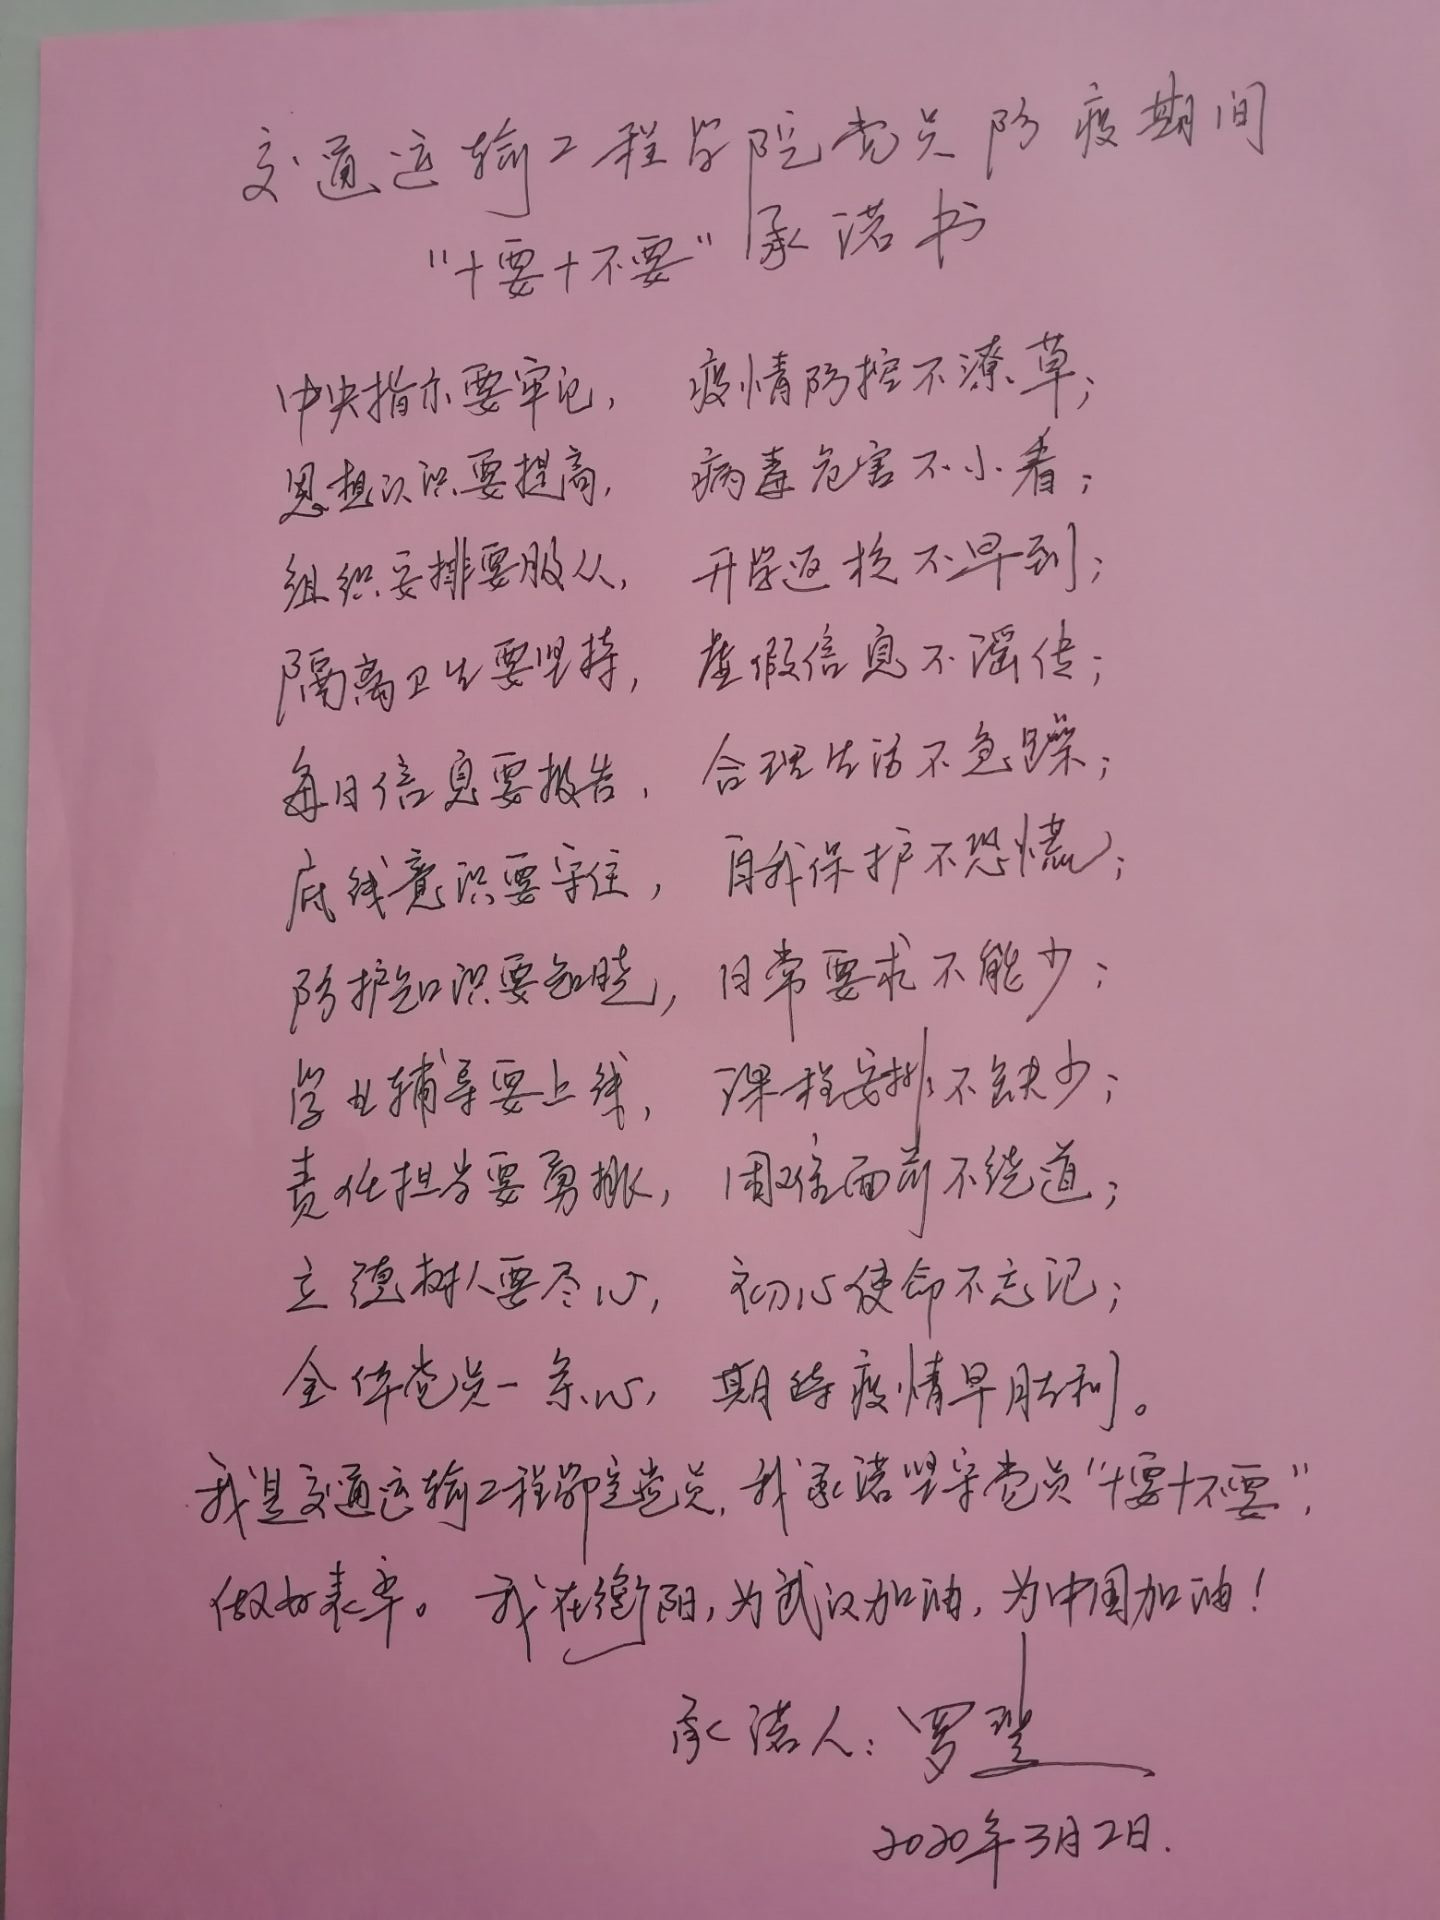 交通运输工程学院党员防疫期间
“十要十不要”承诺书
中央指示要牢记，疫情防控不潦草；
思想认识要提高，病毒危害不小看；
组织安排要服从，开学返校不早到；
隔离卫生要坚持，虚假信息不谣传；
每日信息要报告，合理生活不急躁；
底线意识要守住，自我保护不恐慌；
防护知识要知晓，日常要求不能少；
学业辅导要上线，课程安排不缺少；
责任担当要勇挑，困难面前不绕道；
立德树人要尽心，初心使命不忘记；
全体党员一条心，期待疫情早胜利。
我是交通运输工程学院党员，我承诺坚守党员“十要十不要”，
做好表率。我在衡阳，为武汉加油，为中国加油！
承诺人：罗
2020年3月2日.